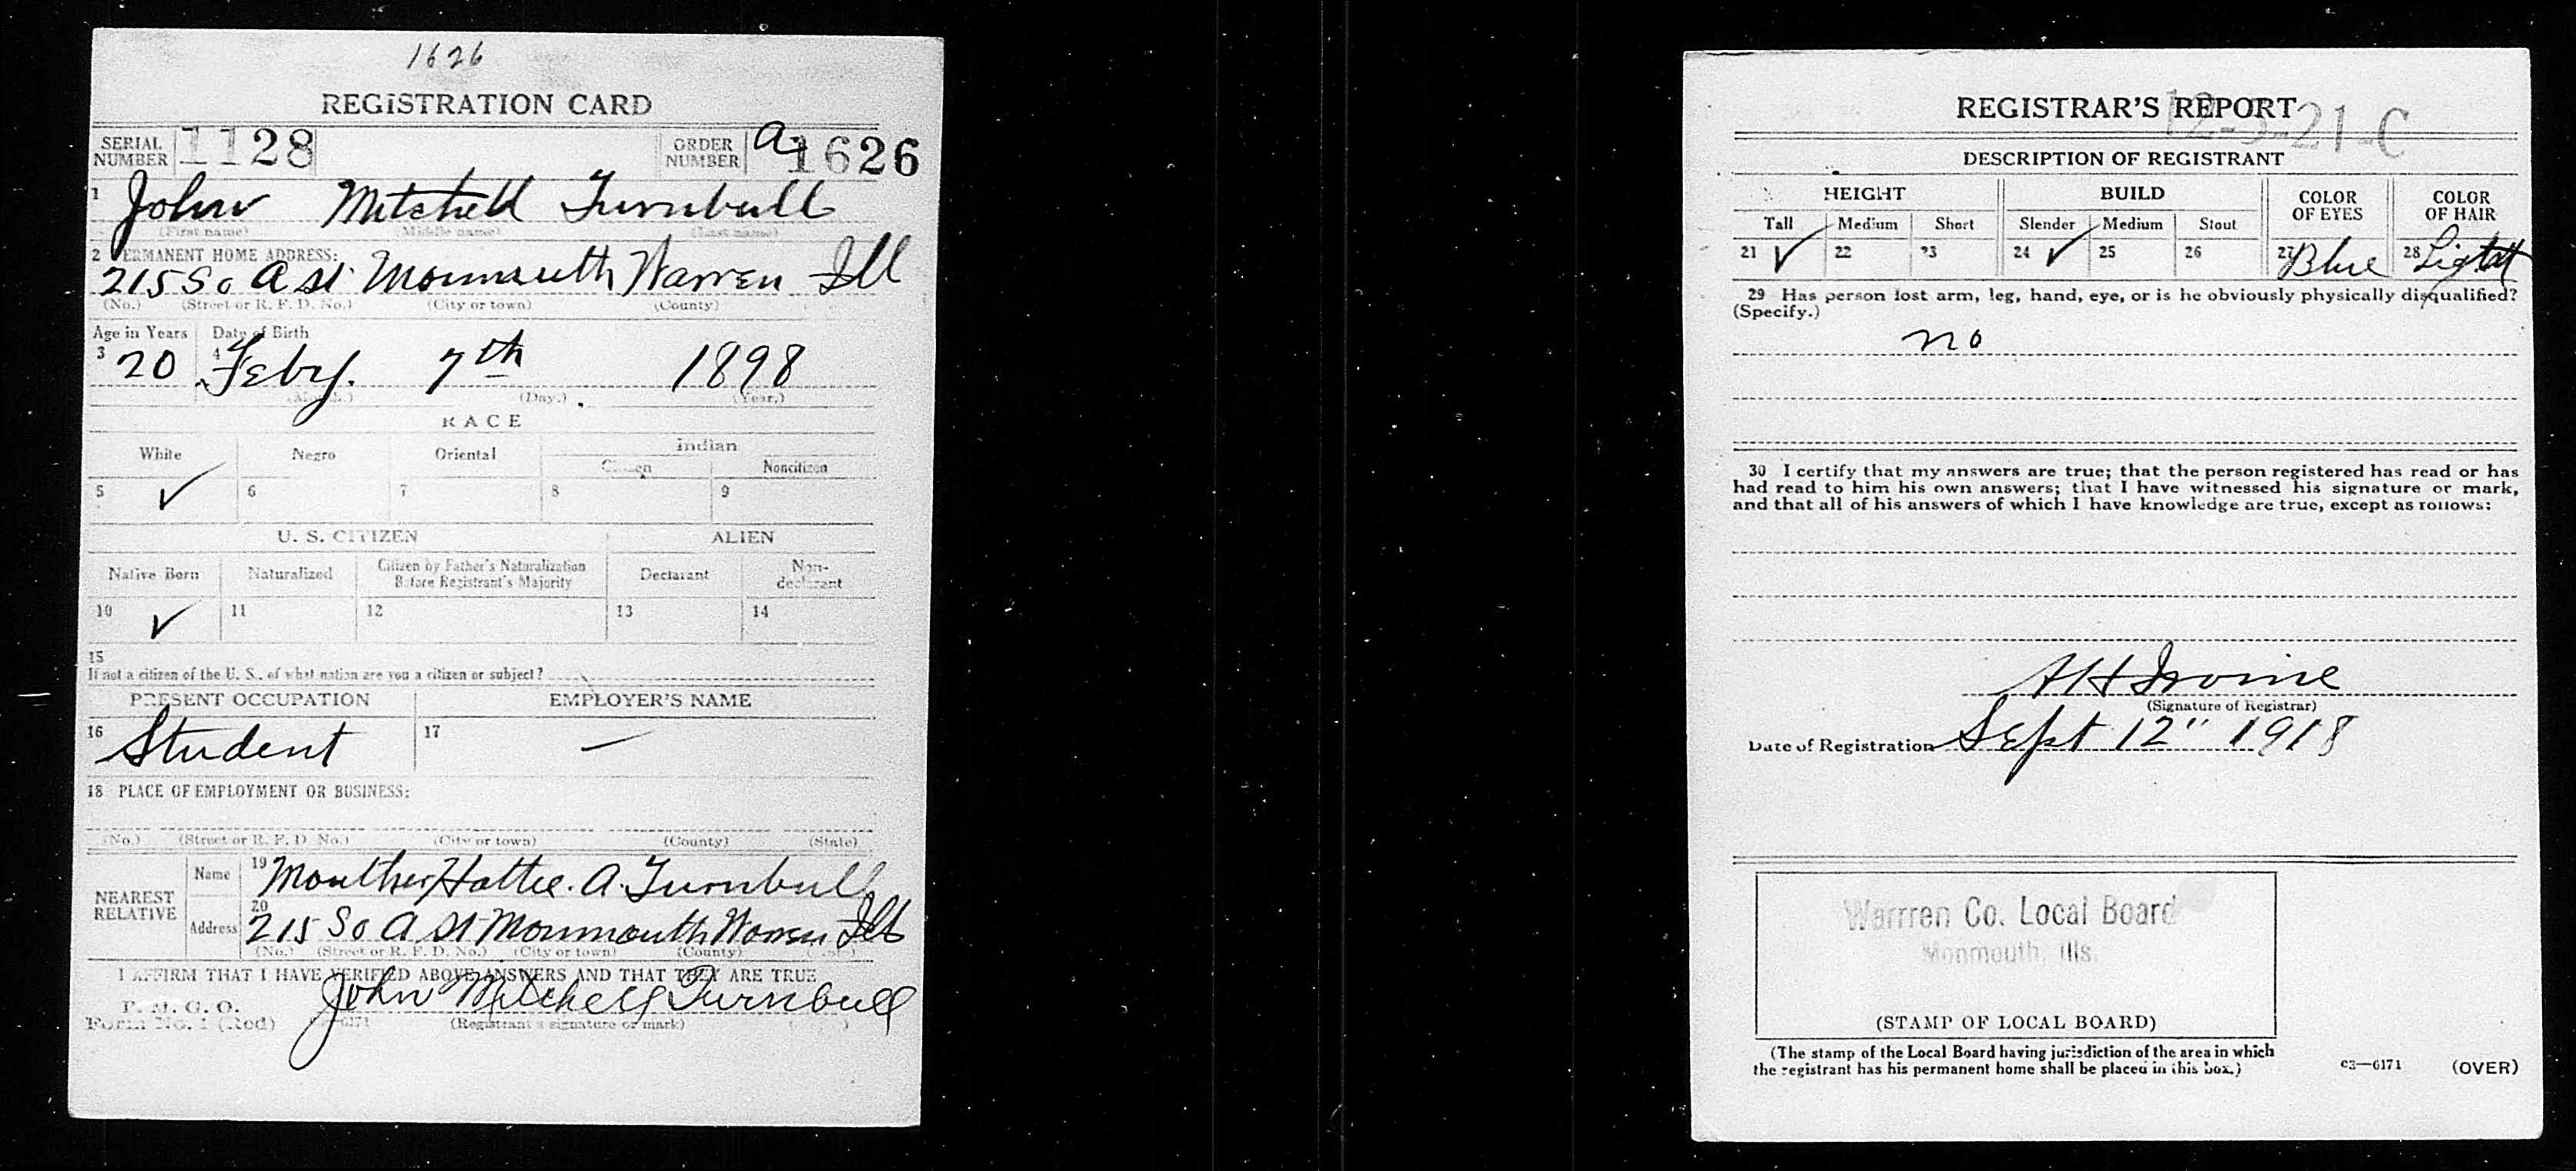 1626
REGISTRATION CARD
SERIAL NUMBER 1128 ORDER NUMBER A1626
1 John Mitchell Turnbull
(First name) (Middle name) (Last name)
2 PERMANENT HOME ADDRESS:
215 So A St Monmouth Warren Ill
(No.) (Street or R. F. D. No.) (City or town) (County)
Age in Years Date of Birth
3 20 4 Feby. 7th 1898
(Month.) (Day.) (Year.)
RACE
White Negro Oriental Indian
Citizen Noncitizen
5 ✓ 6 7 8 9
U. S. CITIZEN ALIEN
Native Born Naturalized Citizen by Father's Naturalization Before Registrant's Majority Declarant Non-declarant
10 ✓ 11 12 13 14
15
If not a citizen of the U. S., of what nation are you a citizen or subject?
PRESENT OCCUPATION EMPLOYER'S NAME
16 Student 17 —
18 PLACE OF EMPLOYMENT OR BUSINESS:
(No.) (Street or R. F. D. No.) (City or town) (County) (State)
NEAREST RELATIVE
Name 19 Mouther Hattie. A. Turnbull
Address 20 215 So A St Monmouth Warren Ill
(No.) (Street or R. F. D. No.) (City or town) (County) (State)
I AFFIRM THAT I HAVE VERIFIED ABOVE ANSWERS AND THAT THEY ARE TRUE
P. M. G. O.
Form No. 1 (Red) John Mitchell Turnbull
(Registrant's signature or mark)
REGISTRAR'S REPORT
12-3-21-C
DESCRIPTION OF REGISTRANT
HEIGHT BUILD COLOR OF EYES COLOR OF HAIR
Tall Medium Short Slender Medium Stout
21 ✓ 22 23 24 ✓ 25 26 27 Blue 28 Light
29 Has person lost arm, leg, hand, eye, or is he obviously physically disqualified?
(Specify.)
no
30 I certify that my answers are true; that the person registered has read or has
had read to him his own answers; that I have witnessed his signature or mark,
and that all of his answers of which I have knowledge are true, except as follows:
A H Irvine
(Signature of Registrar)
Date of Registration Sept 12" 1918
Warrren Co. Local Board
Monmouth, Ills.
(STAMP OF LOCAL BOARD)
(The stamp of the Local Board having jurisdiction of the area in which
the registrant has his permanent home shall be placed in this box.)
c3—6171 (OVER)